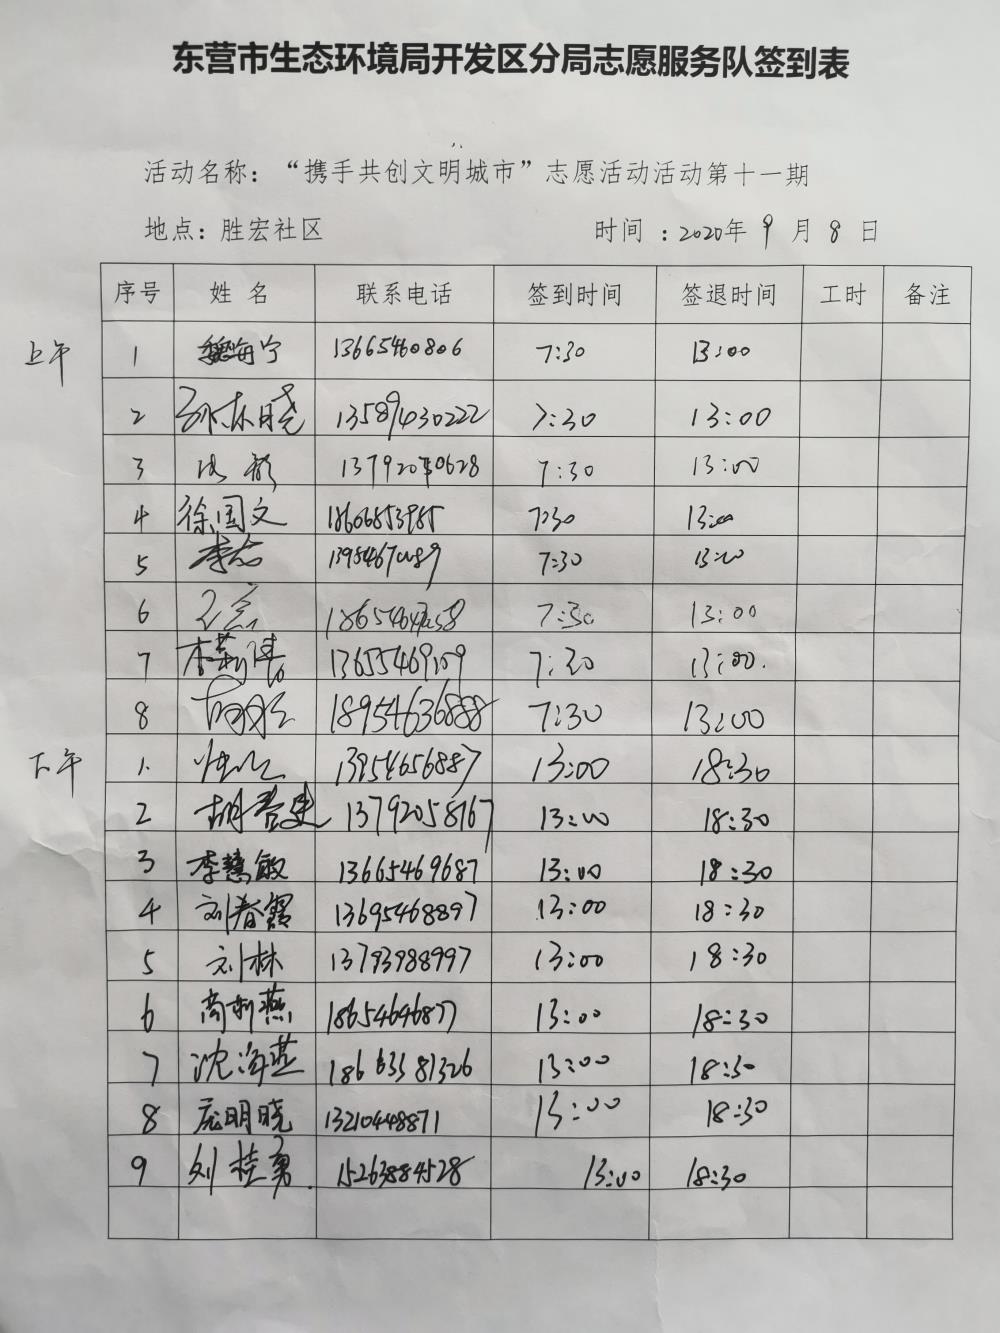 东营市生态环境局开发区分局志愿服务队签到表
活动名称：“携手共创文明城市”志愿活动活动第十一期
地点：胜宏社区 时间：2020年9月8日
序号 姓名 联系电话 签到时间 签退时间 工时 备注
上午 1 魏海宁 13665460806 7:30 13:00
2 孙林晓 13589430222 7:30 13:00
3 7:30 13:00
4 徐国文 18606853985 7:30 13:00
5 7:30 13:00
6 7:30 13:00
7 13655469109 7:30 13:00
8 18954636888 7:30 13:00
下午 1. 13954656887 13:00 18:30
2 13792058167 13:00 18:30
3 李慧敏 13665469687 13:00 18:30
4 刘春霞 13695468897 13:00 18:30
5 刘林 13793988997 13:00 18:30
6 18654646877 13:00 18:30
7 沈海燕 18663581326 13:00 18:30
8 庞明晓 13210448871 13:00 18:30
9 刘桂勇. 15263884528 13:00 18:30